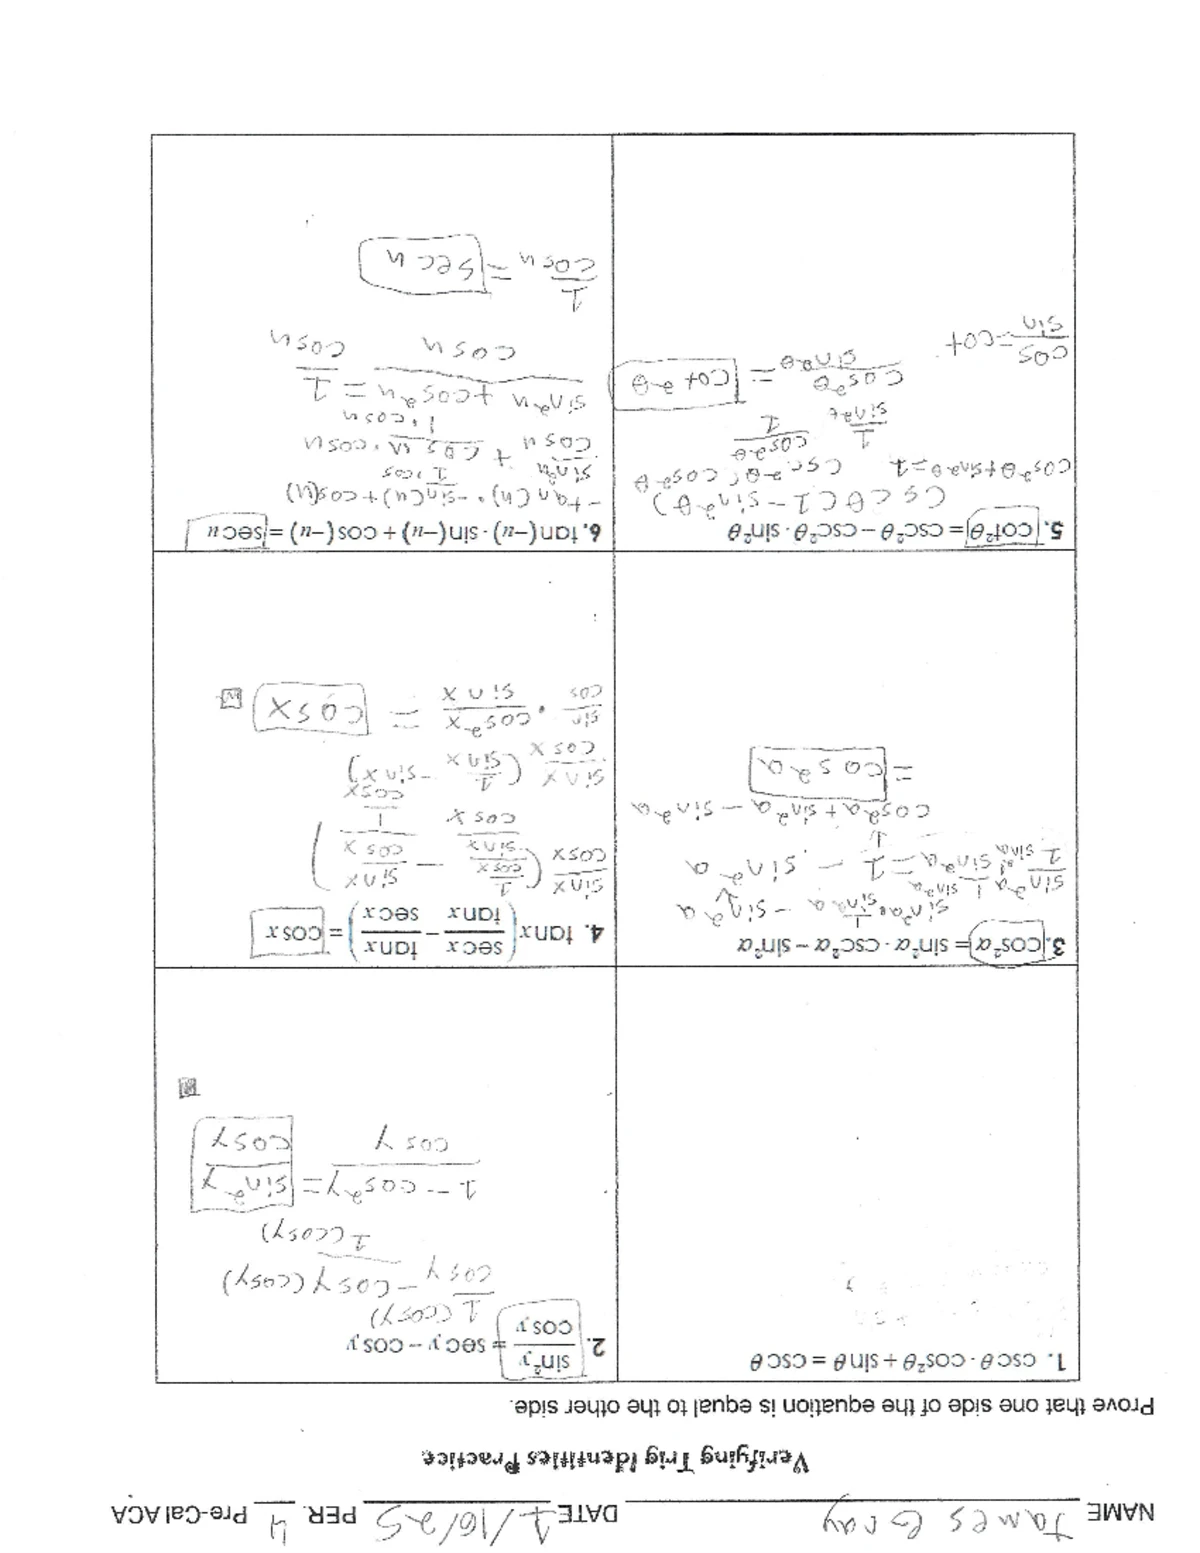 NAME James Gray DATE 1/16/25 PER. 4 Pre-Cal ACA
Verifying Trig Identities Practice
Prove that one side of the equation is equal to the other side.
1. cscθ · cos²θ + sinθ = cscθ
2. sin²y/cosy = secy − cosy
1(cosy)
1/cosy − cosy(cosy)
1(cosy)
1 − cos²y/cosy = sin²y/cosy
3. cos²α = sin²α · csc²α − sin²α
sin²a · 1/sin²a − sin²a
sin²a/1 · 1/sin²a = 1 − sin²a
cos²a + sin²a − sin²a
= cos²a
4. tanx(secx/tanx − tanx/secx) = cosx
sinx/cosx (1/cosx / sinx/cosx − sinx/cosx / 1/cosx)
sinx/cosx (1/sinx − sinx)
sin/cos · cos²x/sinx = cosx
5. cot²θ = csc²θ − csc²θ · sin²θ
Cscθ(1 − sin²θ)
cos²θ + sin²θ = 1 csc²θ · cos²θ
1/sin²θ cos²θ/1
cos²θ/sin²θ = cot²θ
cos/sin = cot
6. tan(−u) · sin(−u) + cos(−u) = secu
−tan(u) · −sin(u) + cos(u)
sin²u/cosu + cosu · cosu/1 · cosu
sin²u + cos²u/cosu = 1/cosu
1/cosu = secu